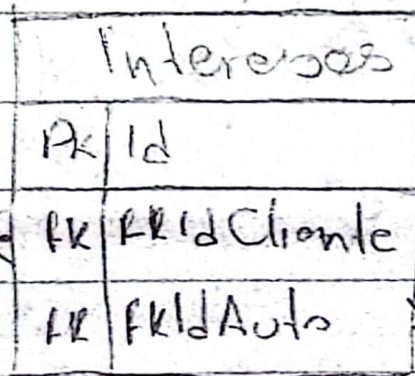 Intereses
Pk Id
fk fkIdCliente
fk fkIdAuto